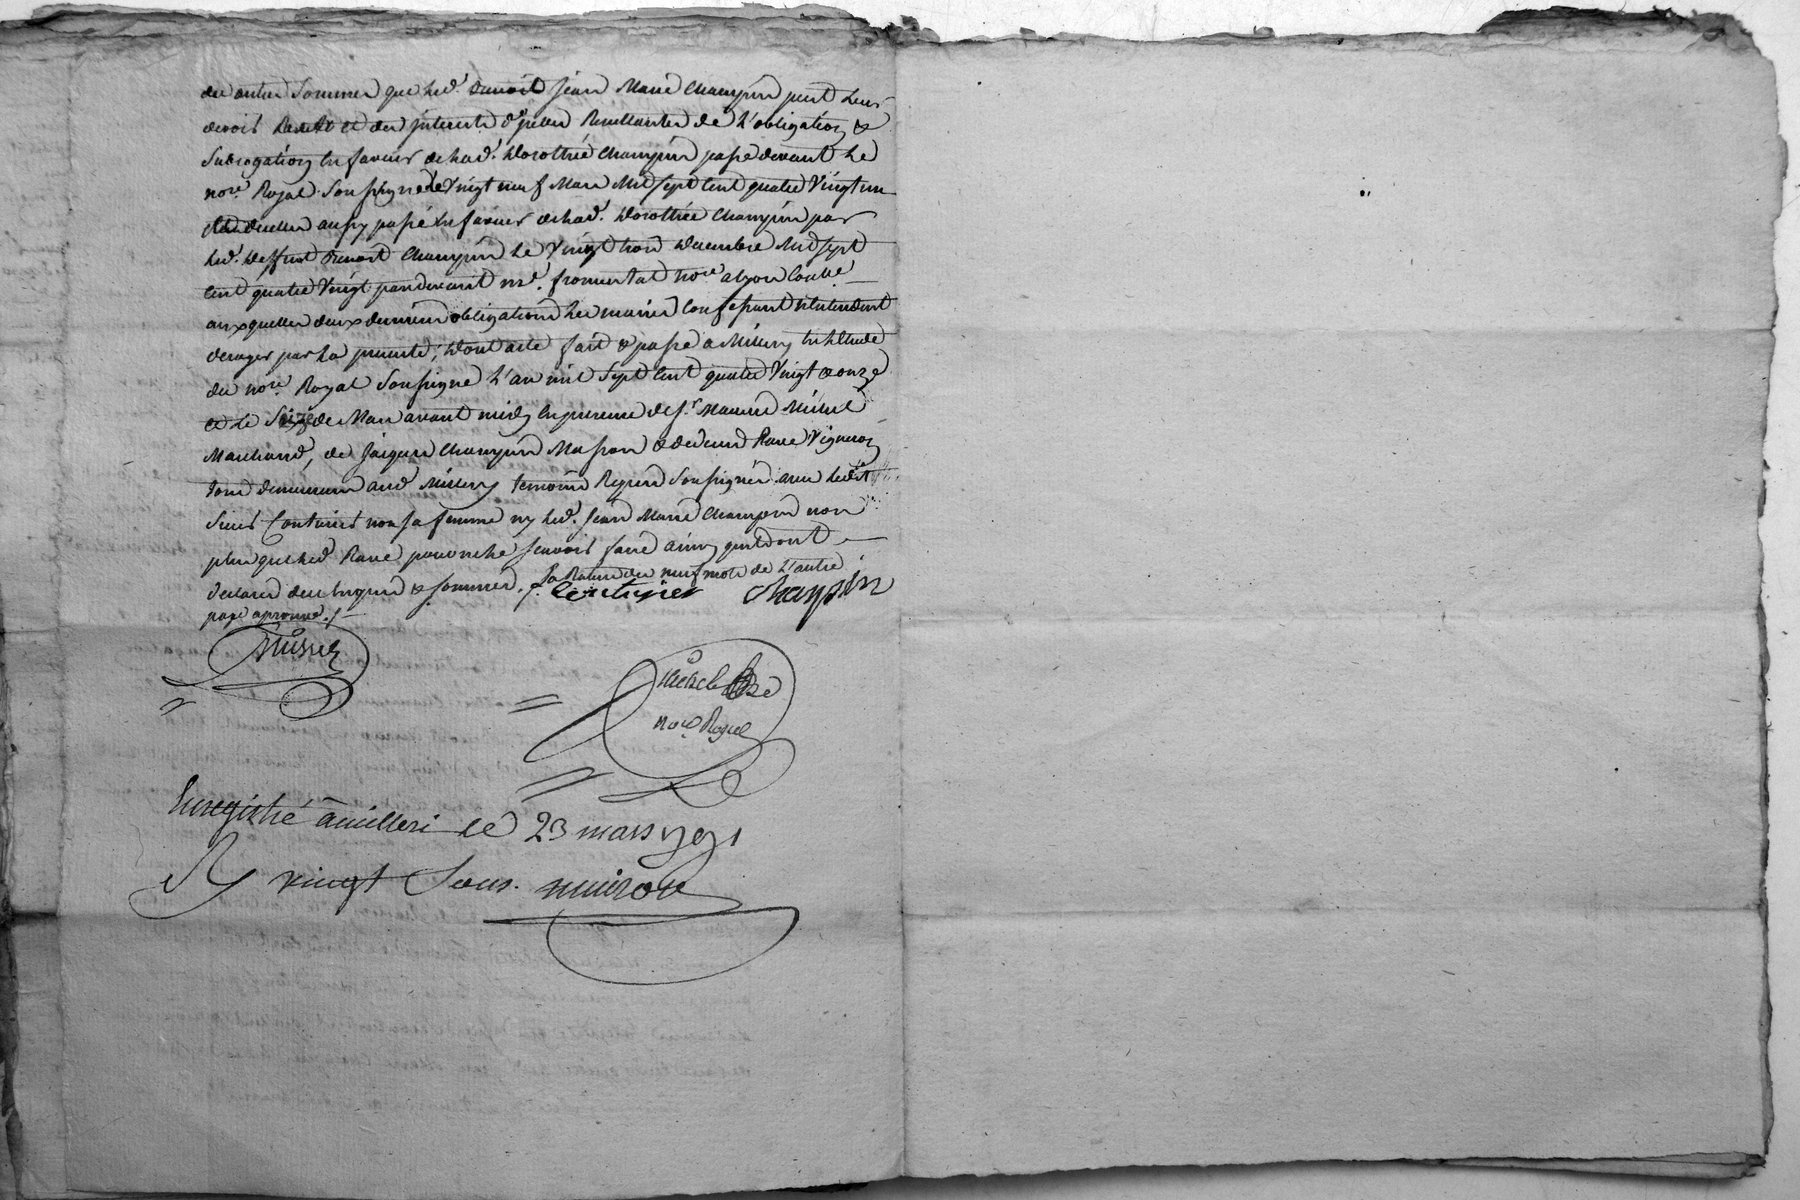 des autres sommes que led. Benoit Jean Marie Champin peut leurs
devoir Reste et des jnterets d'jcelles Resultantes de L'obligation &
Subrogation en faveur de lad. Dorothée Champin passé devant Le
nore. Royal soussigné le Vingt neuf Mars Mil sept Cent quatre Vingt un
aussy passé en faveur de lad. Dorothée Champin par
led. deffunt Benoit Champin Le Vingt trois decembre Mil sept
Cent quatre Vingt pardevant me. fromental nore. a Lyon
auxquelles deux dernieres obligations Les mariés Confessant n'entendent
deroger par La presente; Dont acte fait & passé a Millery en L'étude
du nore. Royal soussigné L'an mil sept Cent quatre Vingt onze
et le Seize de Mars avant midy En presence de sr. Maurice Missol
Marchand, de Jaques Champin Masson & de Rave Vigneron
tous demeurans aud. Millery temoins Requis Soussignés avec Ledit
Sieur Couturier non sa femme ny led. Jean Marie Champin non
plus que led. Rave pour ne le scavoir faire ainsy qu'ils ont
declaré de ce Enquis & sommés. La Rature des neuf mots de L'autre
page aprouvé./.
Couturier Champin
Missol
nore Royal
Enregistré à milleri le 23 mars 1791
R vingt Sous.